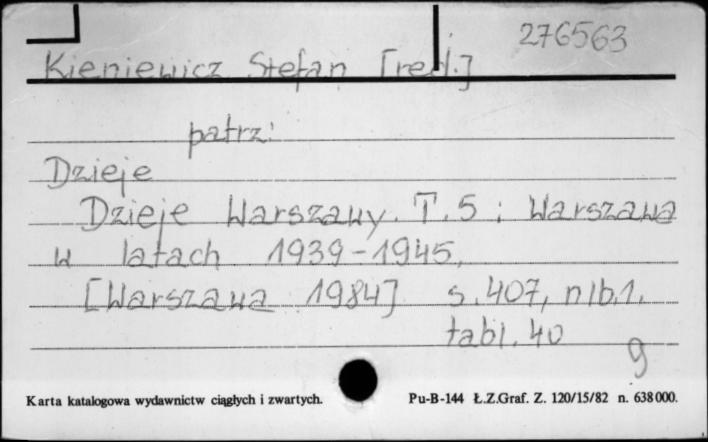 276563
Kieniewicz Stefan [red.]
patrz:
Dzieje
Dzieje Warszawy. T. 5 : Warszawa
w latach 1939-1945,
[Warszawa 1984] s. 407, nlb. 1,
tabl. 40
9
Karta katalogowa wydawnictw ciągłych i zwartych. Pu-B-144 Ł.Z.Graf. Z. 120/15/82 n. 638000.